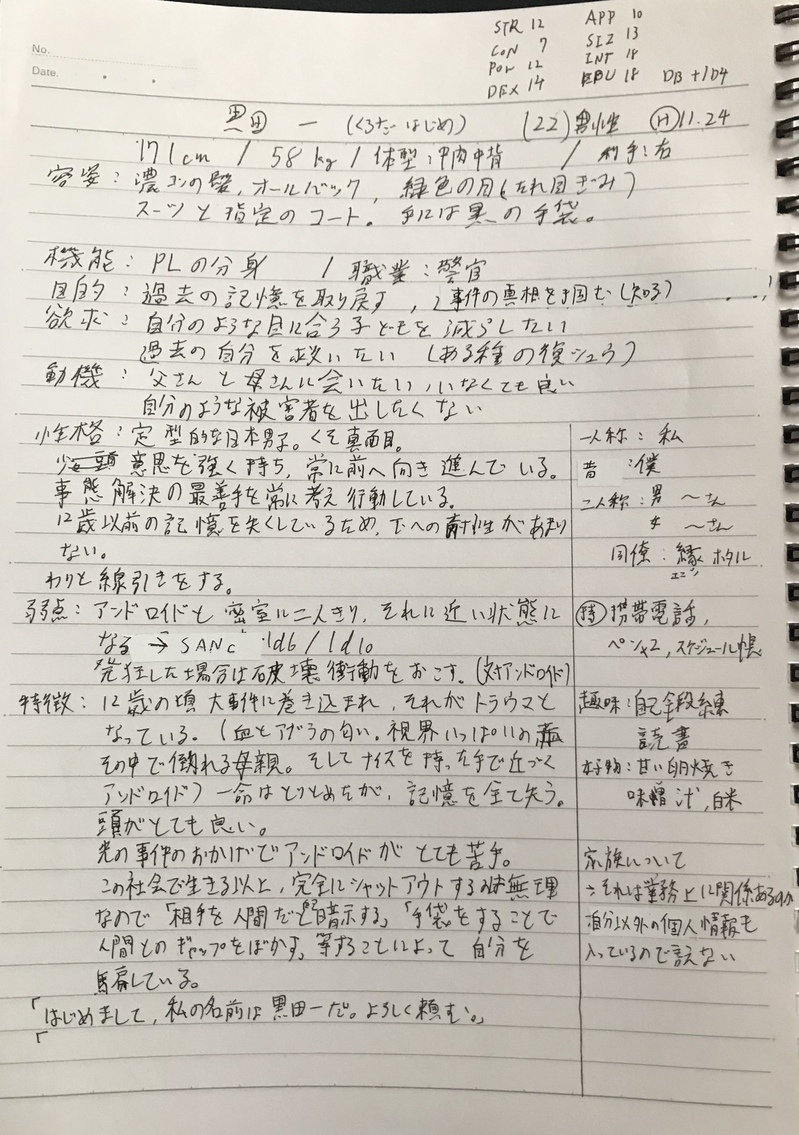 No.
Date.
STR 12 APP 10
CON 7 SIZ 13
POW 12 INT 18
DEX 14 EDU 18 DB +1D4
黒田 一 (くろだ はじめ) (22) 男性 Ⓗ11.24
171cm / 58kg / 体型:中肉中背 / 利き手:右
容姿:濃コンの髪,オールバック, 緑色の目(たれ目ぎみ)
スーツと指定のコート。手には黒の手袋。
機能:PLの分身 / 職業:警官
目的:過去の記憶を取り戻す, 事件の真相を掴む(知る)
欲求:自分のような目に合う子どもを減らしたい
過去の自分を救いたい (ある種の復シュウ)
動機:父さんと母さんに会いたい,いなくても良い
自分のような被害者を出したくない
性格:定型的な日本男子。くそ真面目。
意思を強く持ち,常に前へ向き進んでいる。
事態解決の最善手を常に考え行動している。
12歳以前の記憶を失くしているため,下への耐性があまり
ない。
わりと線引きをする。
弱点:アンドロイドと密室に二人きり,それに近い状態に
なる → SANc 1d6/1d10
発狂した場合は破壊衝動をおこす。(対アンドロイド)
特徴:12歳の頃 大事件に巻き込まれ,それがトラウマと
なっている。(血とアブラの匂い。視界いっぱいの
その中で倒れる母親。そしてナイフを持,左手で近づく
アンドロイド) 一命はとりとめたが,記憶を全て失う。
頭がとても良い。
先の事件のおかげでアンドロイドがとても苦手。
この社会で生きる以上,完全にシャットアウトするのは無理
なので「相手を人間だと暗示する」「手袋をすることで
人間とのギャップをぼかす」等することによって 自分を
騙している。
「はじめまして,私の名前は黒田一だ。よろしく頼む。」
「
一人称:私
昔 :僕
二人称:男 〜さん
女 〜さん
同僚:縁 ホタル
エニシ
㊕携帯電話,
ペン×2,スケジュール帳
趣味:自己鍛練
読書
好物:甘い卵焼き
味噌汁,白米
家族について
→それは業務上に関係あるのか
自分以外の個人情報も
入っているので言えない